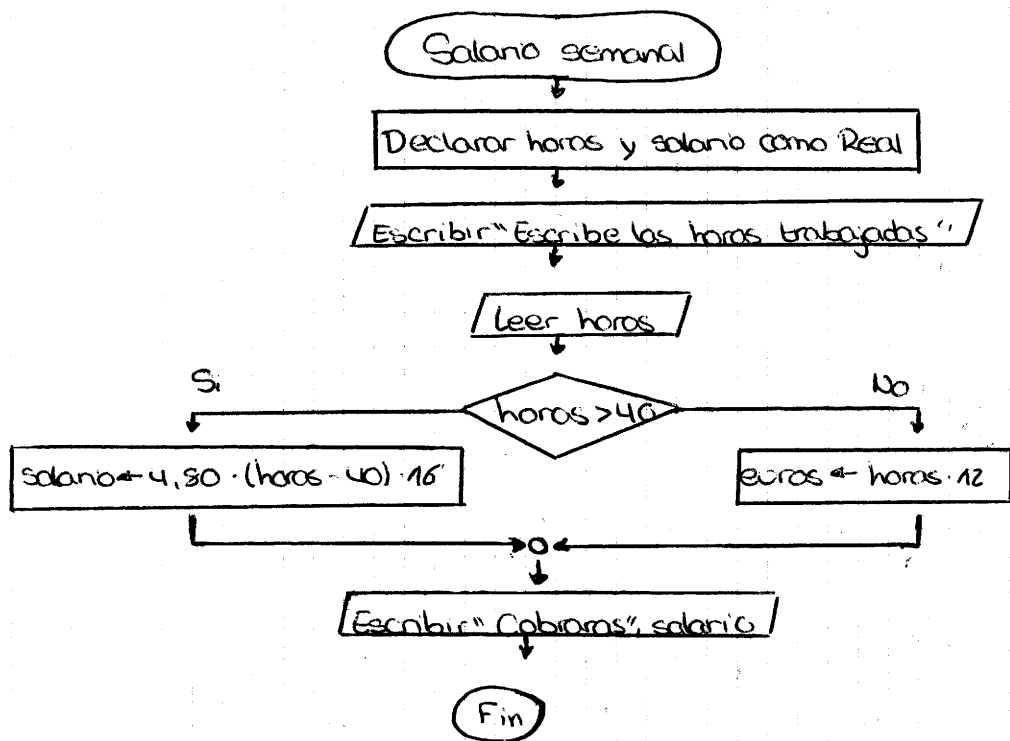 Salario semanal
Declarar horas y salario como Real
Escribir "Escribe las horas trabajadas"
Leer horas
Si
No
horas > 40
salario ← 4,80 · (horas - 40) · 16
euros ← horas · 12
Escribir "Cobraras", salario
Fin